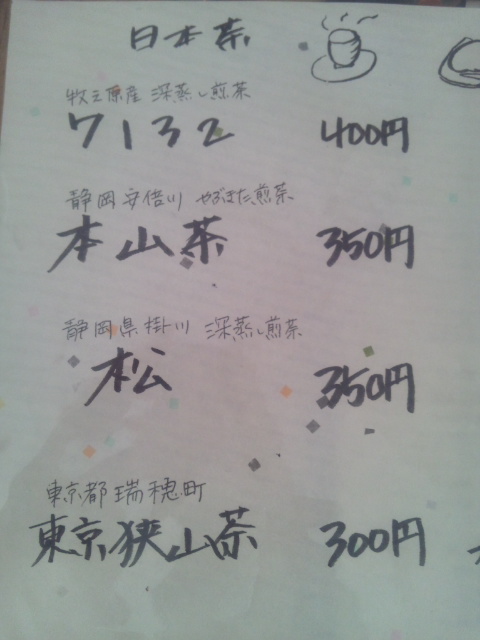 日本茶
牧之原産 深蒸し煎茶
7132 400円
静岡安倍川 やぶきた煎茶
本山茶 350円
静岡県掛川 深蒸し煎茶
松 350円
東京都瑞穂町
東京狭山茶 300円